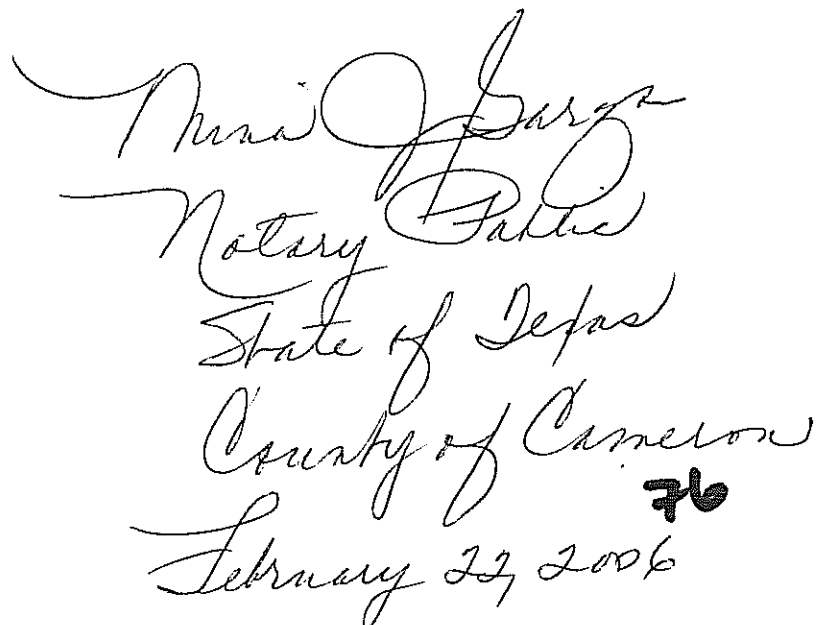 Nina J Garza
Notary Public
State of Texas
County of Cameron
76
February 22, 2006